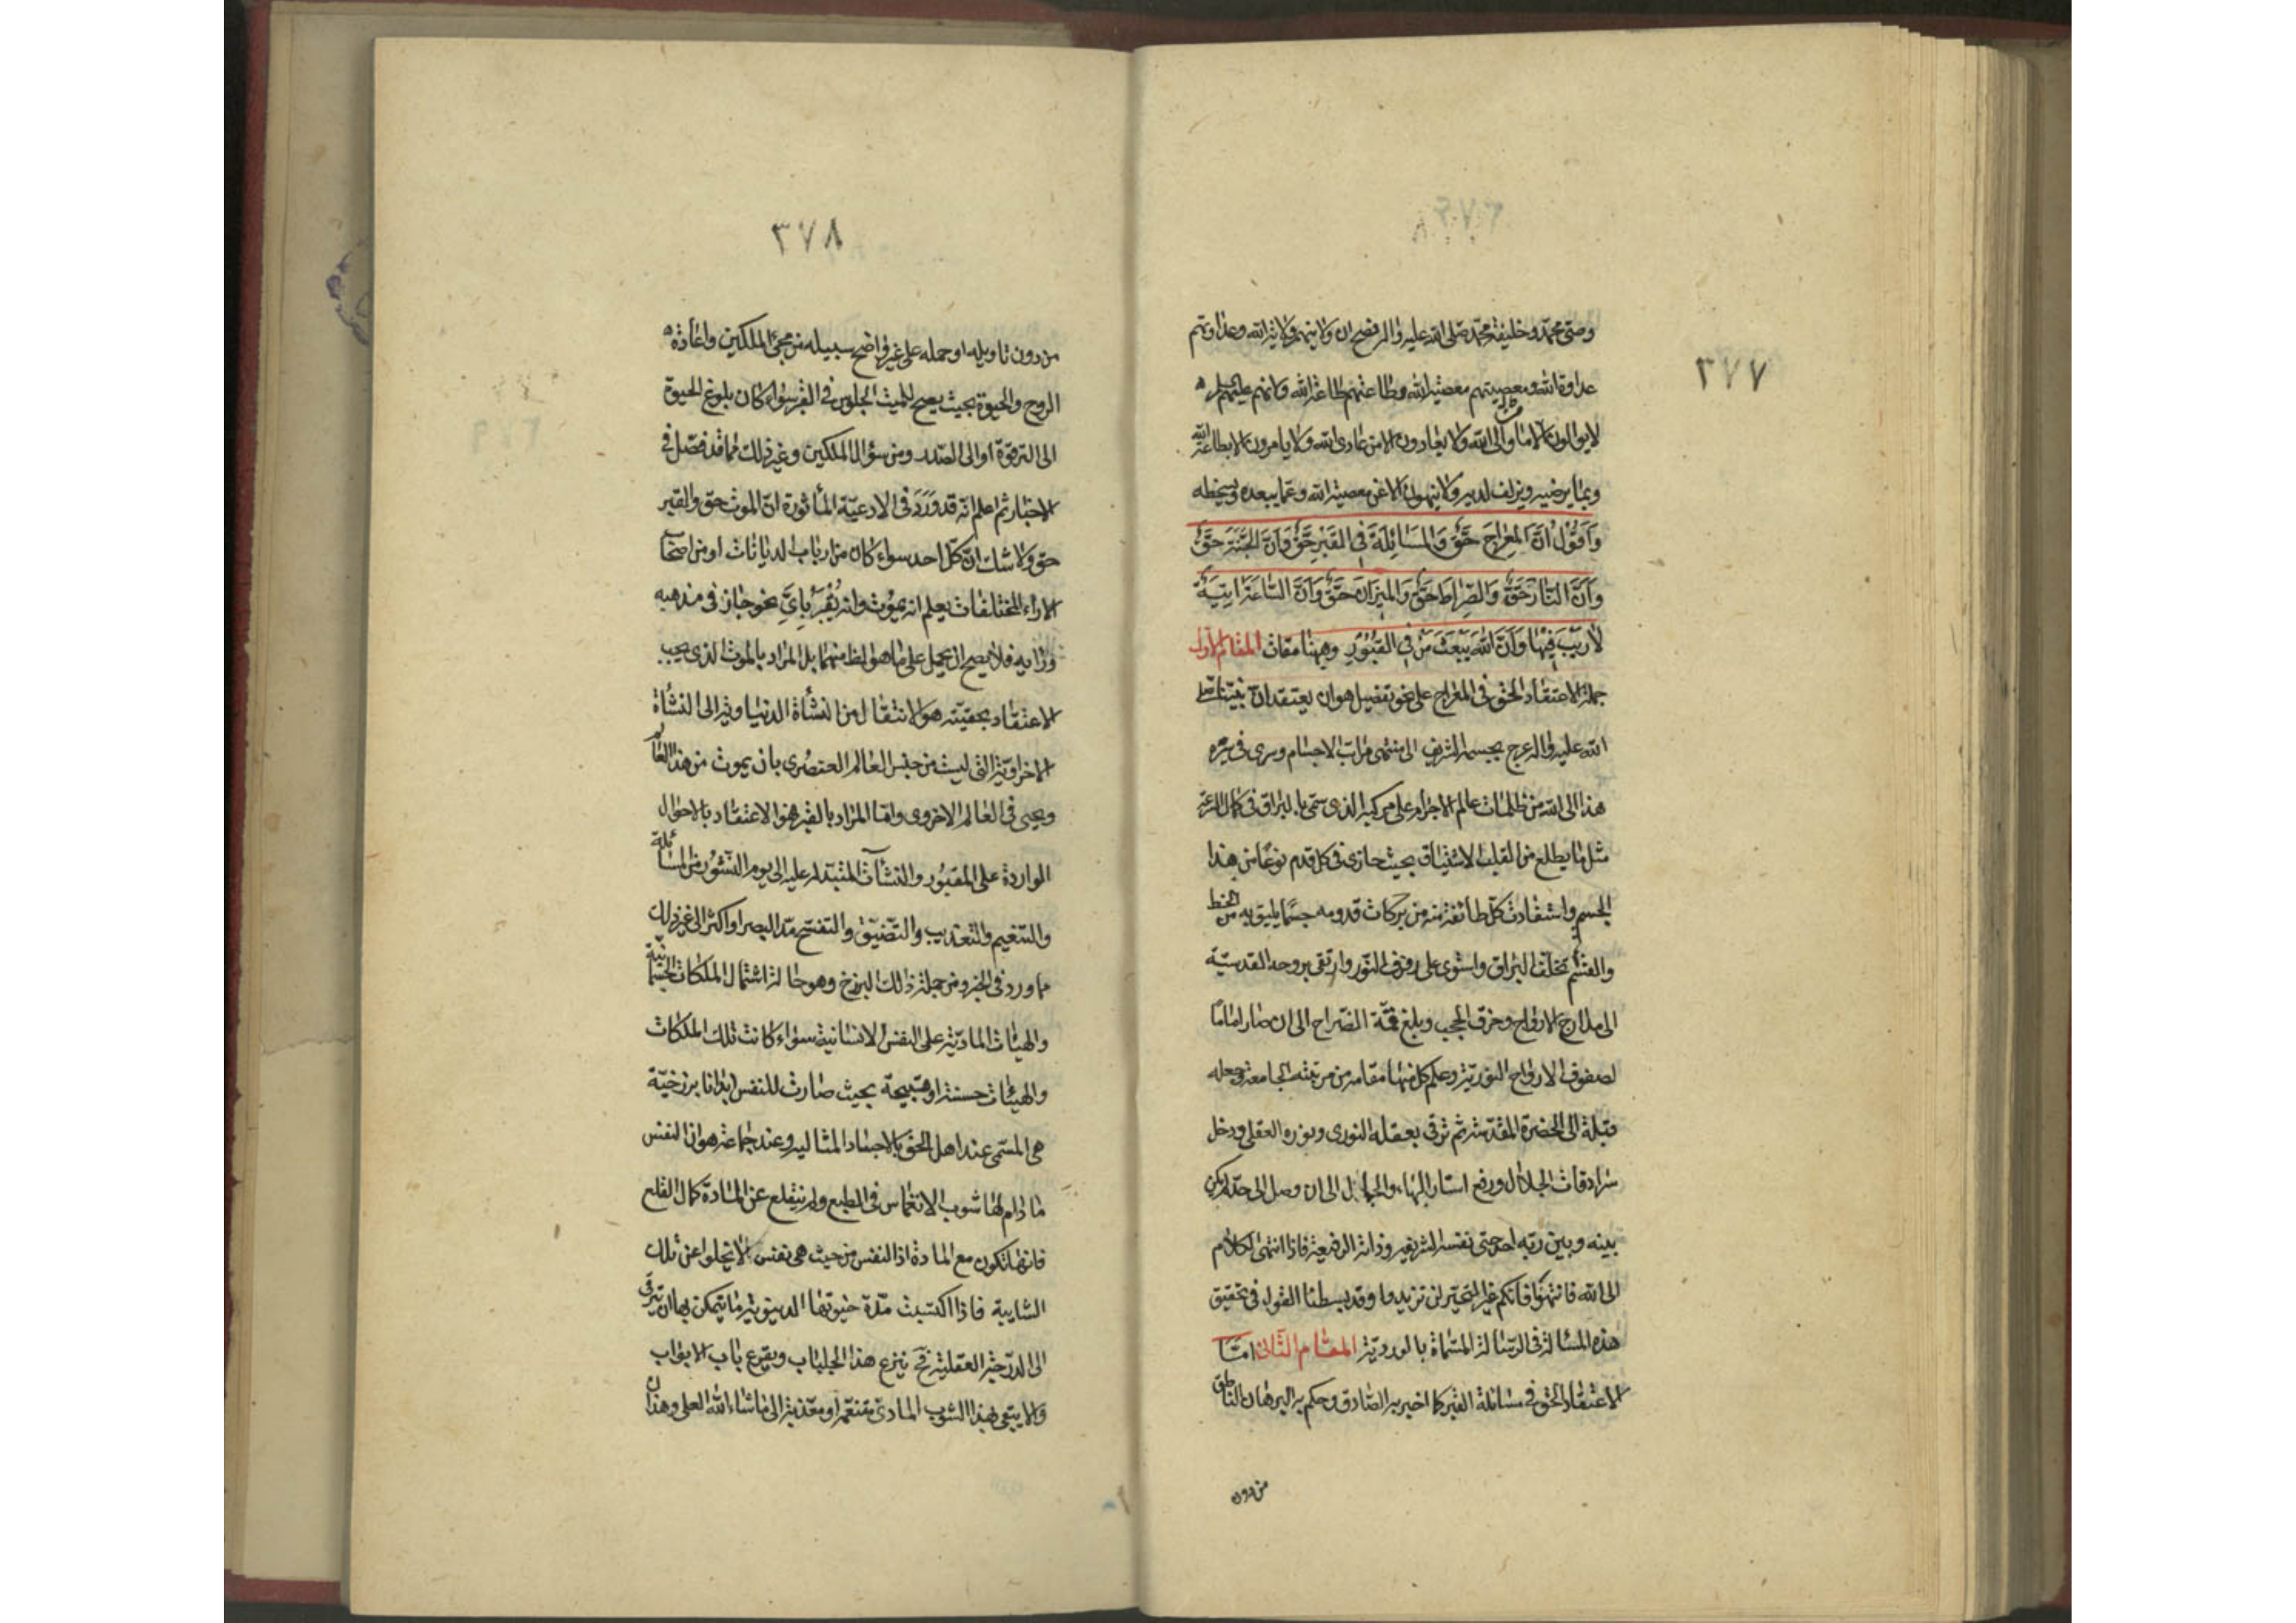 ٣٧٧
وصیّ محمّد وخليفة محمّد صلى الله عليه واله فصحّ ان ولايتهم ولاية الله وعداوتهم
عداوة الله ومعصيتهم معصية الله وطاعتهم طاعة الله وكانهم عليهم
لا يوالون الا من والى الله ولا يعادون الا من عادى الله ولا يامرون الا بطاعة الله
وبما يرضيه ويزلف لديه ولا ينهون الا عن معصية الله وعما يبعده ويسخطه
وَاَقُوْلُ اِنَّ المِعْرٰاجَ حَقٌّ وَالمُسٰائِلَةَ فِي القَبْرِ حَقٌّ وَاَنَّ الجَنَّةَ حَقٌّ
وَاَنَّ النّٰارَ حَقٌّ وَالصِّرٰاطَ حَقٌّ وَالمِيْزٰانَ حَقٌّ وَاَنَّ السّٰاعَةَ اٰتِيَةٌ
لٰا رَيْبَ فِيْهٰا وَاَنَّ اللهَ يَبْعَثُ مَنْ فِي القُبُوْرِ وههنا مقامات المقام الاول
جملة الاعتقاد الحق في المعراج على نحو تفصيل هو ان يعتقد انّ نبيّنا صلى
الله عليه واله عرج بجسمه الشريف الى منتهى مراتب الاجسام وسرى في سيره
هذا الى الله من ظلمات عالم الاجرام على مركبه الذي سمّي بالبراق في كمال السرعة
مثل ما يطلع من القلب الاشتياق بحيث حازى في كل قدم نوعًا من هذا
الجسم واستفادت كلّ طائفة منه من بركات قدومه جسمًا يليق به من الحظ
والقسم ثم تخلّف البراق واستوى على رفرف النّور وارتقى بروحه القدسيّة
الى مدارج الارواح وخرق الحجب وبلغ قمّة الضراح الى ان صار اماما
لصفوف الارواح النوريّة وعلم كل منها مقامه من مرتبته الجامعة وجعله
قبلة الى الحضرة المقدّسة ثم ترقى بعقله النوري وبنوره العقلي ودخل
سرادقات الجلال ورفع استار البهاء والجمال الى ان وصل الى حدّ لم يكن
بينه وبين ربّه احد حتى نفسه الشريفة وذاته الرفيعة فاذا انتهى الكلام
الى الله فانتهوا فانكم غير التحيّر لن تزيدوا وقد بسطنا القول في تحقيق
هذه المسالة في الرسالة المسمّاة بالوروديّة المقام الثانى امّا
الاعتقاد الحق في مسائلة القبر كما اخبر به الصّادق وحكم به البرهان الناطق
من دون
٣٧٨
من دون تاويله او حمله على غير واضح سبيله من مجئ الملكين واعادة
الروح والحيوة بحيث يصح للميت الجلوس في القبر سواء كان بلوغ الحيوة
الى الترقوة او الى الصدر ومن سؤال الملكين وغير ذلك مما قد فصّل في
الاخبار ثم اعلم انّه قد وَرَدَ في الادعيّة المأثورة انّ الموت حق والقبر
حق ولا شك ان كلّ احد سواء كان من ارباب الديانات او من اصحاب
الاراء المختلفات يعلم انه يموت وانه يُقبَر بايّ نحو جاز في مذهبه
ورايه فلا يصح ان يحمل على ما هو الظ منهما بل المراد بالموت الذي يجب
الاعتقاد بحقيّته هو الانتقال من النشأة الدنياوية الى النشأة
الاخراويّة التي ليست من جنس العالم العنصُري بان يموت من هذا العالم
ويحيى في العالم الاخروي واما المراد بالقبر هو الاعتقاد بالاحوال
الواردة على المقبُور والنشآت المتبدلة عليه الى يوم النّشُور من المسائلة
والتنعيم والتعذيب والتّضيّق والتفسّح مدّ البصر او اكثر الى غير ذلك
مما ورد في الخبر ومن جملة ذلك البرزخ وهو حالة اشتمال الملكات الجسمانيّة
والهيئات الماديّة على النفس الانسانية سواء كانت تلك الملكات
والهيئات حسنة او قبيحة بحيث صارت للنفس ابدانا برزخيّة
هي المسمّى عند اهل الحق بالاجساد المثالية وعند جماعة هو ان النفس
ما دام لها شوب الانغماس في الطبع ولم ينقلع عن المادّة كمال القلع
فانها تكون مع المادة اذ النفس من حيث هي نفس لا تخلوا عن تلك
الشايبة فاذا اكتسبت مدّة حيوتها الدنيوية ما يتمكن بها ان يترقى
الى الدرجة العقلية فح ينزع هذا الجلباب ويقرع باب الابواب
والا يبقى بهذا الشوب المادي متنعّمة او معذّبة الى ما شاء الله العلي وهذان